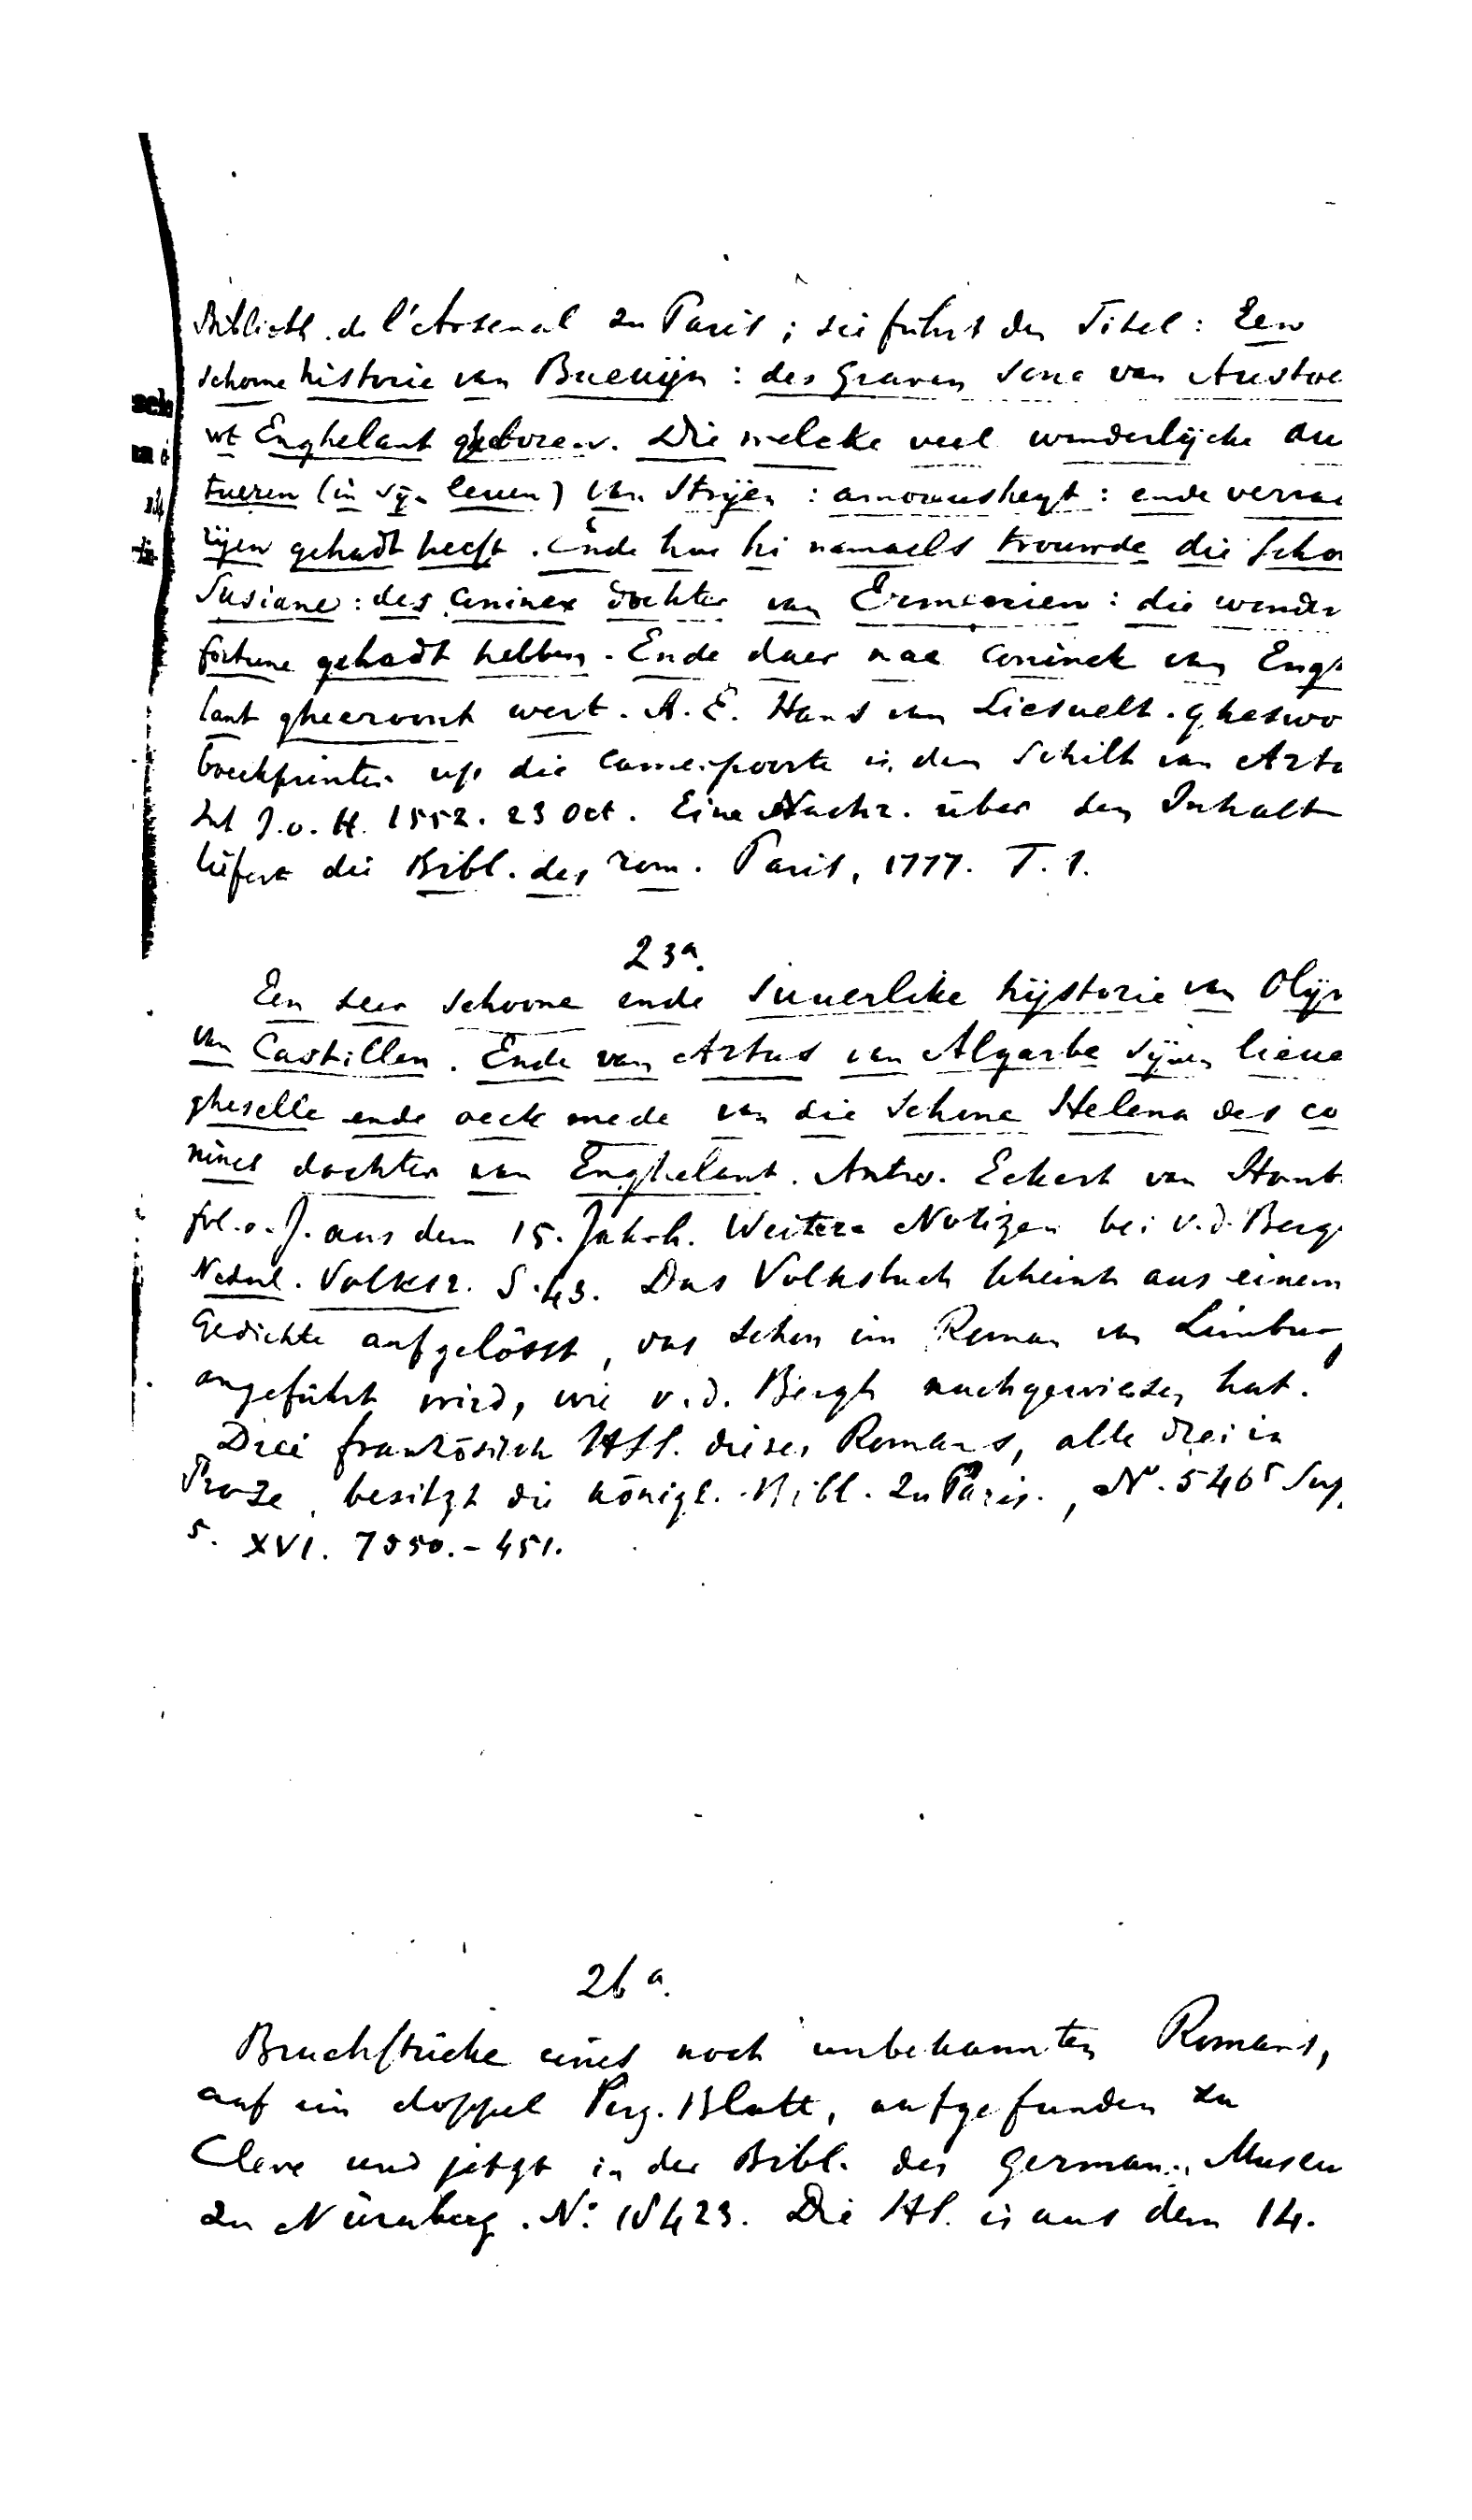 Biblioth. de l'Arsenal zu Paris; sie führt den Titel: Een
schone historie van Bueuijn: des Grauen sone van Austoe
wt Enghelant gheboren. Die welcke veel wonderlijcke au
tueren (in sijn leuen) van Strijen: amoreusheyt: ende verrae
rijen gehadt heeft. Ende hoe hi namaels trouwde die scho
Susiane: des conincx dochter van Ermenien: die wonder
fortune gehadt hebben. Ende daer nae coninck van Engh
lant ghecroont wert. A. E. Hans van Liesuelt. gheswo
boeckprinter up die Camerpoorte in den Schilt van Arto
Int J. o. H. 1552. 23 Oct. Eine Nachr. über den Inhalt
liefert die Bibl. des rom. Paris, 1777. T. 1.
23a.
Een seer schoone ende suuerlike hijstorie van Olijv
van Castillen. Ende van Artus van Algarbe sijnen lieue
gheselle ende oeck mede van die schone Helena des co
nincs dochter van Enghelant. Antw. Eckert van Homb.
fol. o. J. aus dem 15. Jahrh. Weitere Notizen bei v. d. Bergh
Nederl. Volksr. S. 43. Das Volksbuch scheint aus einem
Gedichte aufgelösst, das schon im Roman van Limburg
angeführt wird, wie v. d. Bergh nachgewiesen hat.
Drei französisch HSS. dieses Romans, alle drei in
Proze, besitzt die königl. Bibl. zu Paris., No. 5465 Sup
5. XVI. 7550.-451.
26a.
Bruchstücke eines noch unbekannten Romans,
auf ein doppel Perg. Blatt, aufgefunden zu
Cleve und jetzt in der Bibl. des german. Museu
zu Nürnberg. No: 18423. Die HS. is aus dem 14.